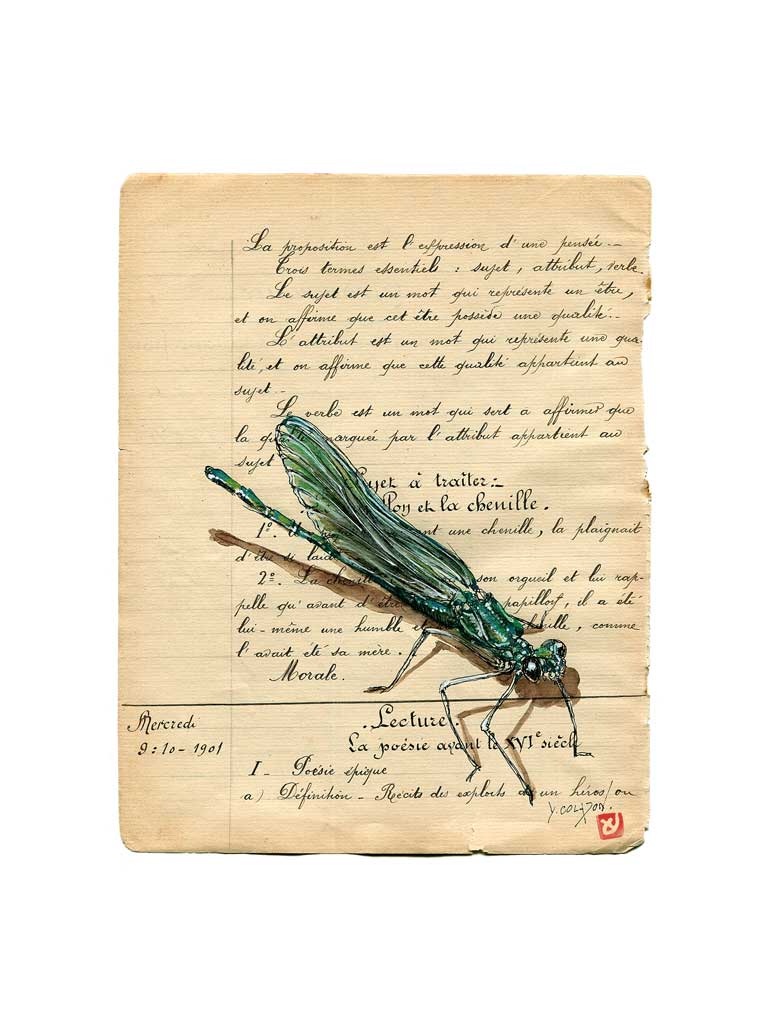 La proposition est l'expression d'une pensée.-
Trois termes essentiels : sujet, attribut, verbe.
Le sujet est un mot qui représente un être,
et on affirme que cet être possède une qualité.-
L'attribut est un mot qui représente une qua-
lité, et on affirme que cette qualité appartient au
sujet.-
Le verbe est un mot qui sert à affirmer que
la marquée par l'attribut appartient au
sujet
Sujet à traiter:-
et la chenille.
1º. une chenille, la plaignait
d'être si laide
2º. La son orgueil et lui rap-
pelle qu'avant d'être papillon, il a été
lui-même une humble et chenille, comme
l'avait été sa mère.
Morale.
Mercredi
9:10-1901
.Lecture.
La poésie avant le XVIe siècle
I - Poésie épique
a) Définition - Récits des exploits d'un héros/ou
Y. COLIXDON.